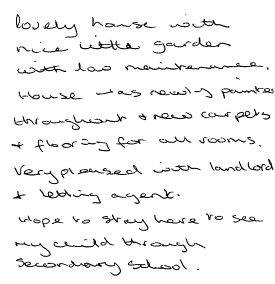 lovely house with
nice little garden
with low maintenance.
House was newly painted
throughout + new carpets
+ flooring for all rooms.
Very pleased with landlord
+ letting agent.
Hope to stay here to see
my child through
secondary school.